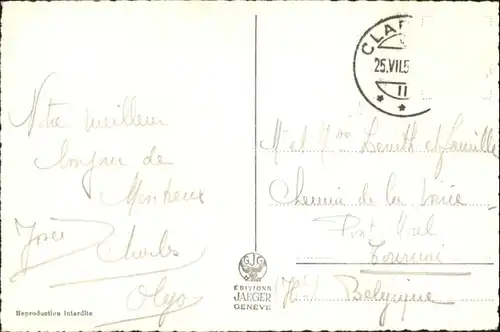 Notre meilleur
bonjour de
Montreux
José
Charles
Olga
Reproduction interdite
ÉDITIONS
JAEGER
GENÈVE
CLAR
25.VII.5
II
M et Mme et famille
Chemin de la
Pont
Tournai
Belgique